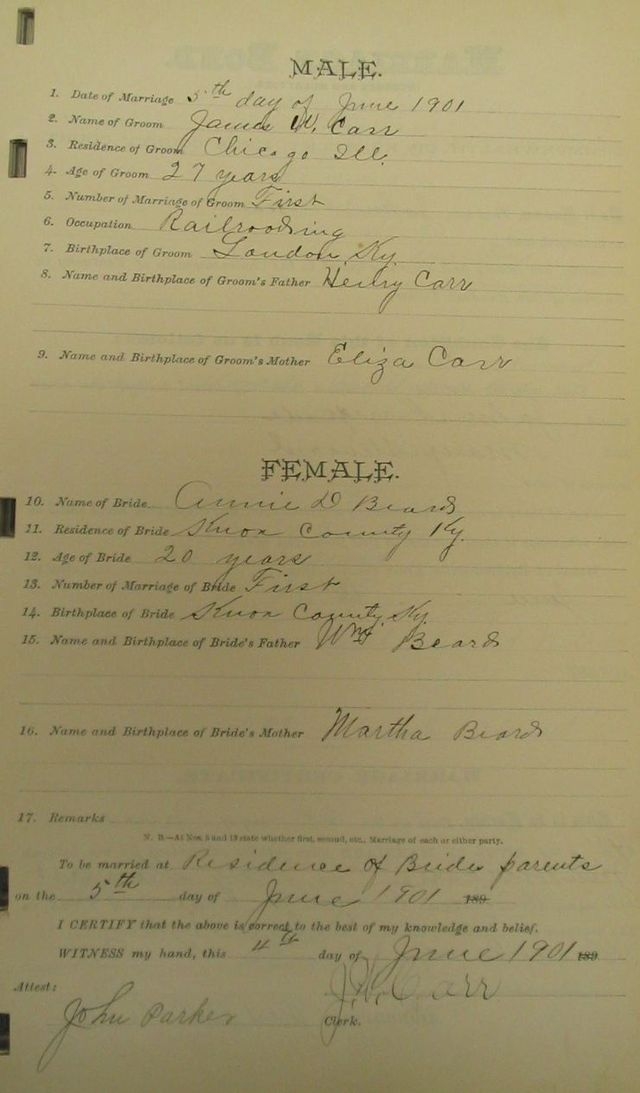 MALE.
1. Date of Marriage 5th day of June 1901
2. Name of Groom James W. Carr
3. Residence of Groom Chicago Ill.
4. Age of Groom 27 years
5. Number of Marriage of Groom First
6. Occupation Railrooding
7. Birthplace of Groom London, Ky.
8. Name and Birthplace of Groom's Father Henry Carr
9. Name and Birthplace of Groom's Mother Eliza Carr
FEMALE.
10. Name of Bride Annie D Beard
11. Residence of Bride Knox County Ky.
12. Age of Bride 20 years
13. Number of Marriage of Bride First
14. Birthplace of Bride Knox County, Ky.
15. Name and Birthplace of Bride's Father Wm Beard
16. Name and Birthplace of Bride's Mother Martha Beard
17. Remarks
N. B.—At Nos. 5 and 13 state whether first, second, etc., Marriage of each or either party.
To be married at Residence of Bride parents
on the 5th day of June 1901 189
I CERTIFY that the above is correct to the best of my knowledge and belief.
WITNESS my hand, this 4th day of June 1901 189
Attest: J. W. Carr
John Parker Clerk.